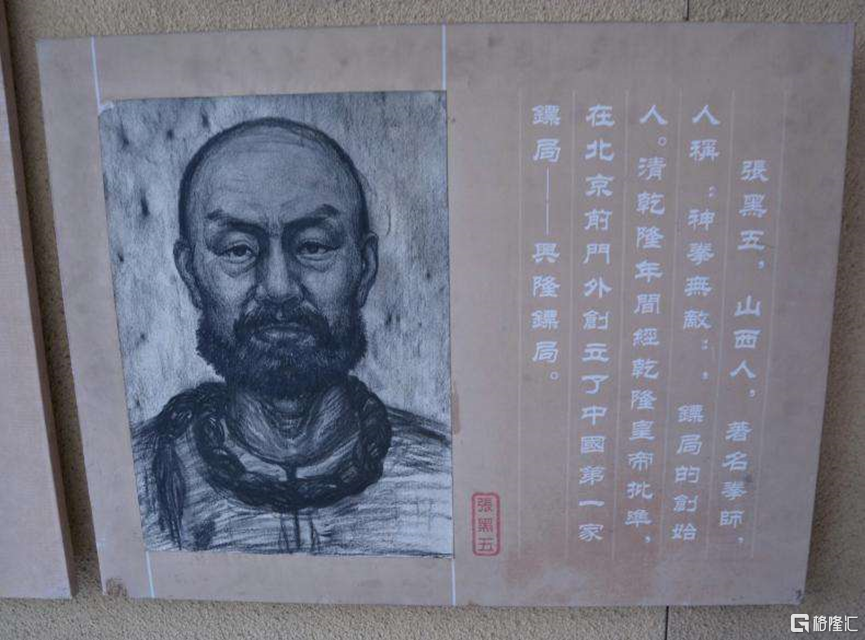 張黑五，山西人，著名拳師，
人稱：神拳無敵：，鏢局的創始
人。清乾隆年間經乾隆皇帝批準，
在北京前門外創立了中國第一家
鏢局——興隆鏢局。
張黑五
格隆汇